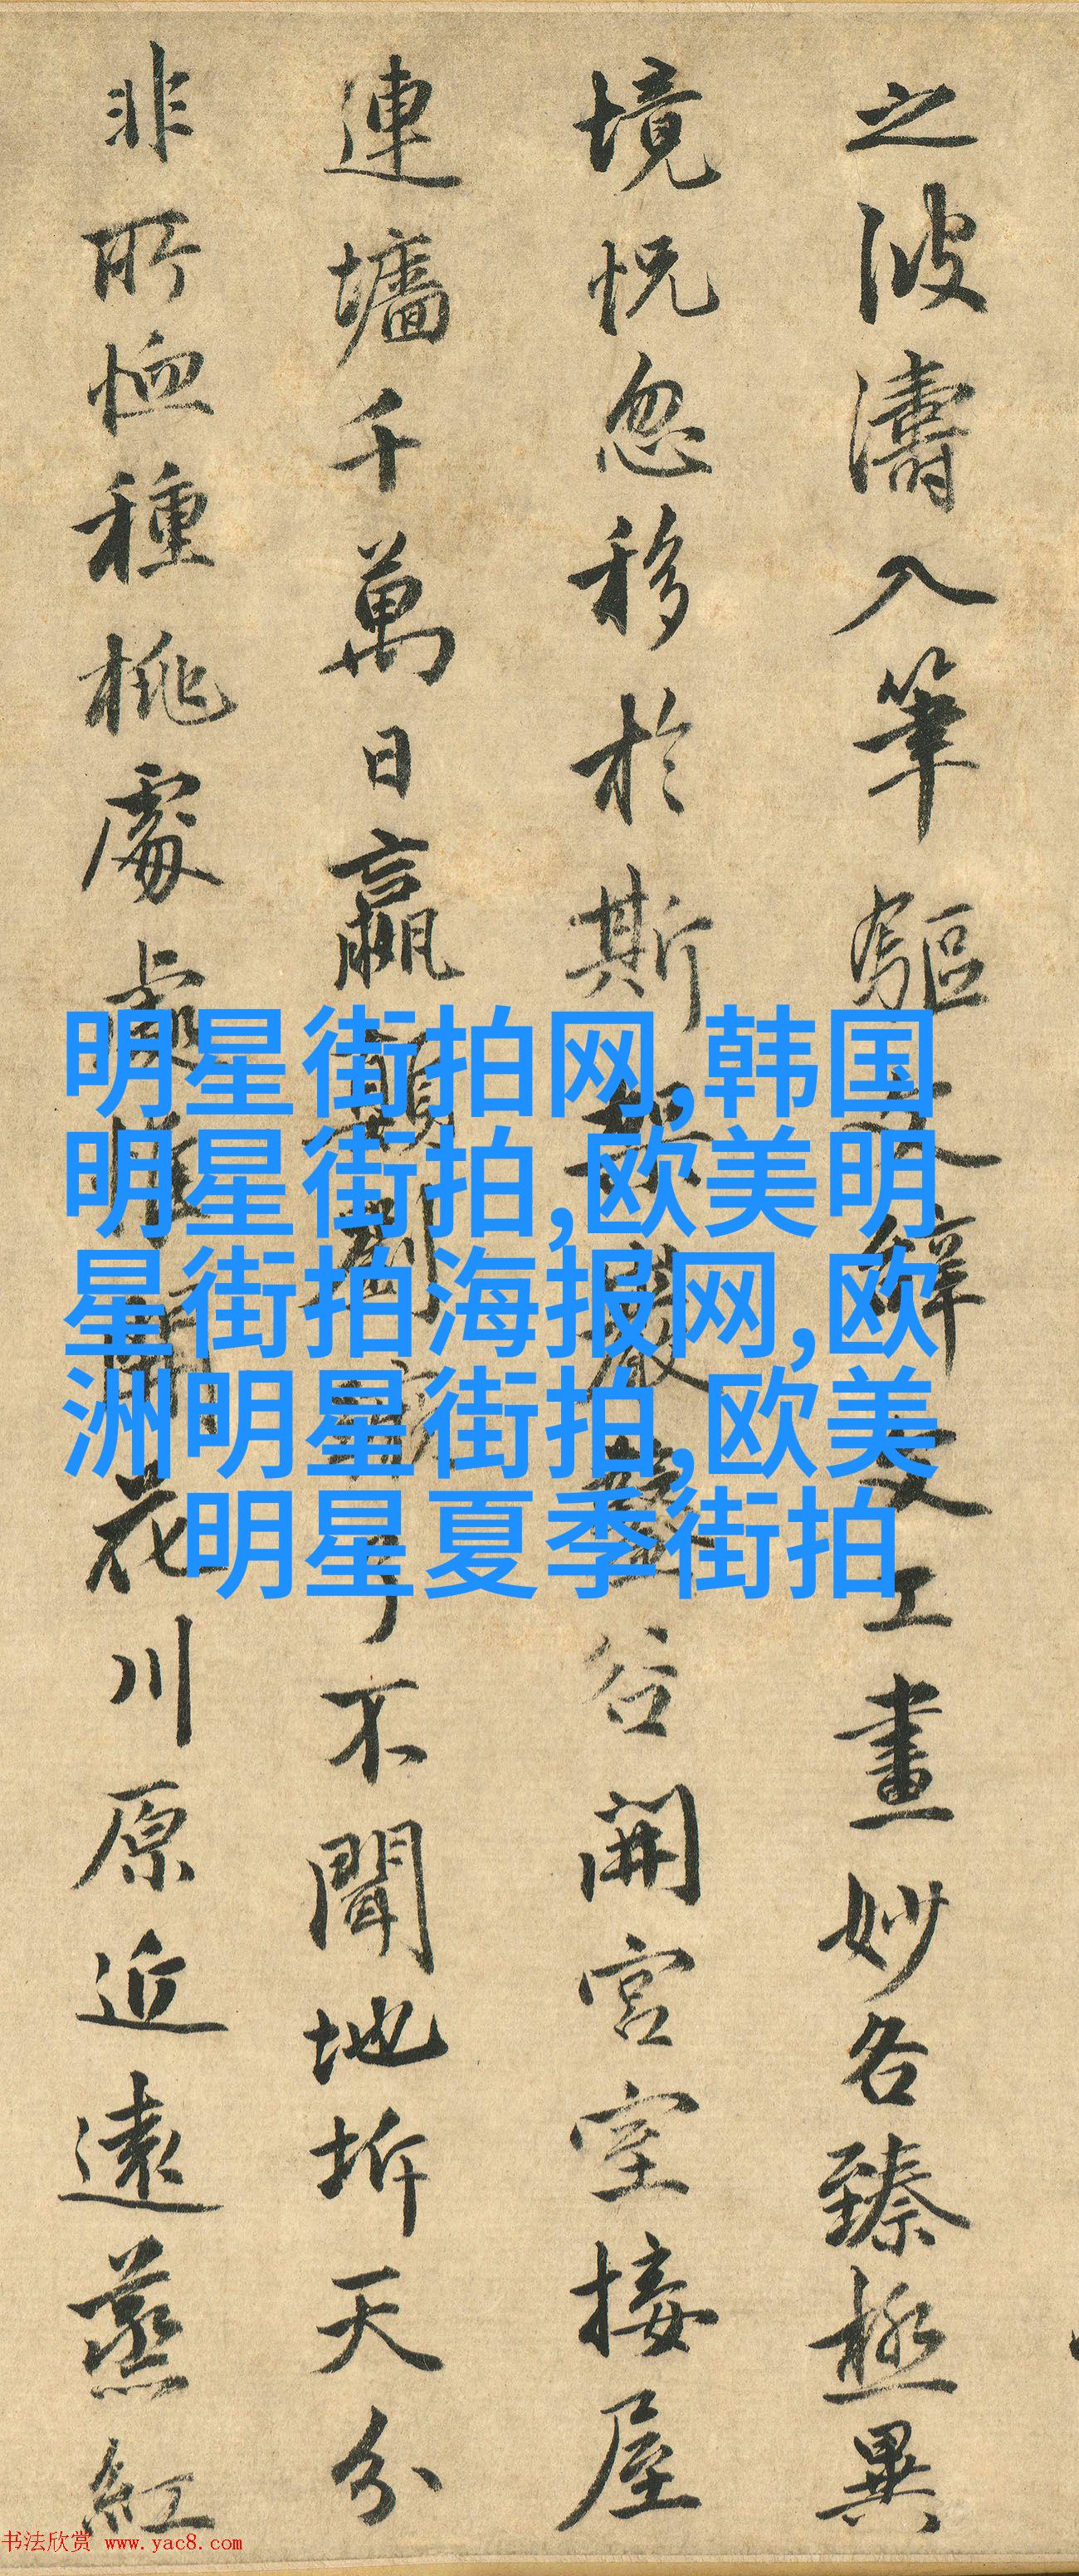 之波濤入筆驅文辭文工畫妙各臻極異
境怳忽移於斯架巖鑿谷開宮室接屋
連墻千萬日嬴顛劉蹶了不聞地坼天分
非所恤種桃處處惟開花川原近遠蒸紅
明星街拍网,韩国
明星街拍,欧美明
星街拍海报网,欧
洲明星街拍,欧美
明星夏季街拍
书法欣赏 www.yac8.com